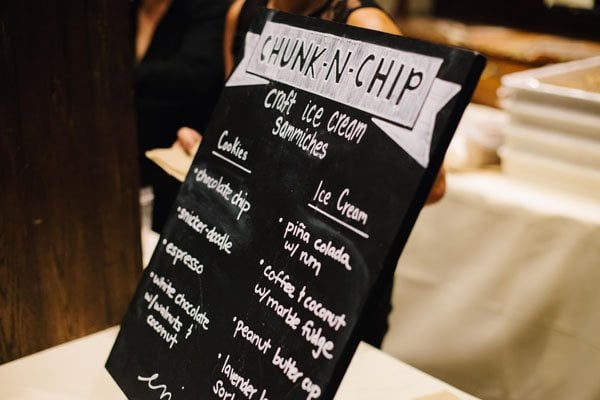 CHUNK-N-CHIP
craft ice cream
sammiches
Cookies
• chocolate chip
• snicker-doodle
• espresso
• white chocolate
w/ walnuts &
coconut
Ice Cream
• piña colada
w/ rum
• coffee & coconut
w/ marble fudge
• peanut butter cup
• lavender